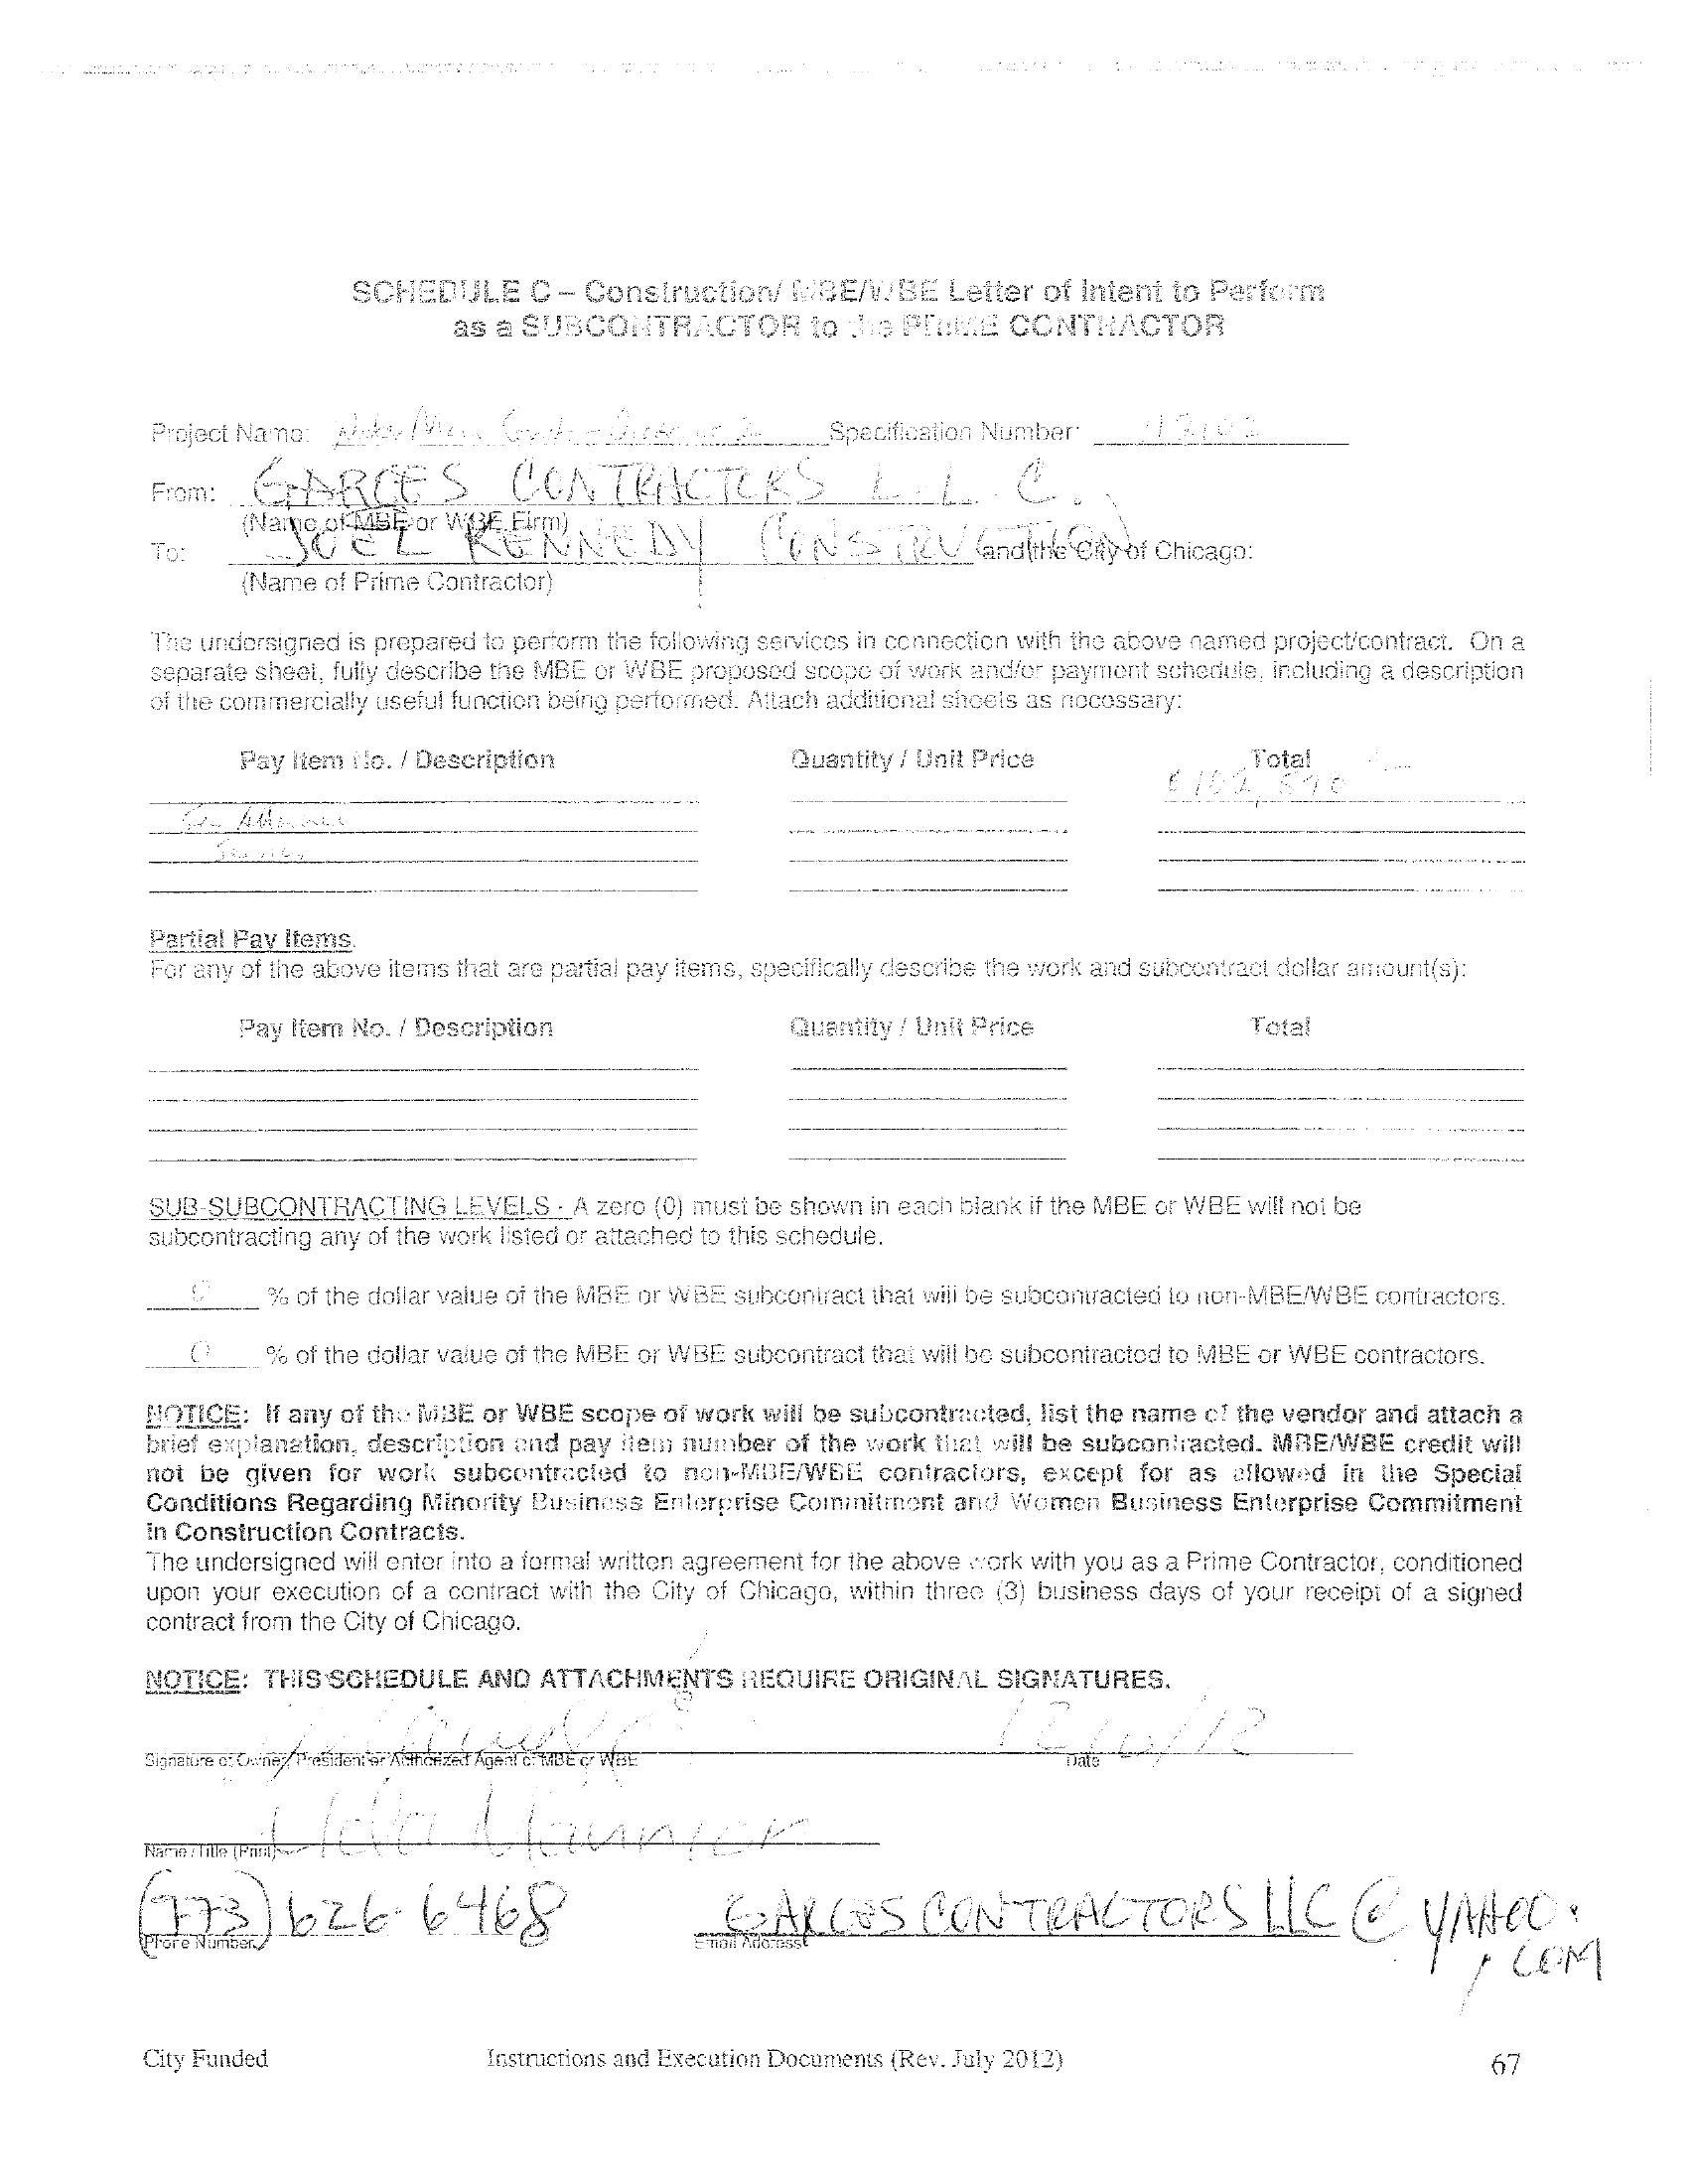 SCHEDULE C – Construction/ MBE/WBE Letter of Intent to Perform
as a SUBCONTRACTOR to the PRIME CONTRACTOR
Project Name: Specification Number:
From: GARCES CONTRACTORS L.L.C.
(Name of MBE or WBE Firm)
To: JOEL KENNEDY CONSTRUCTION and the City of Chicago:
(Name of Prime Contractor)
The undersigned is prepared to perform the following services in connection with the above named project/contract. On a
separate sheet, fully describe the MBE or WBE proposed scope of work and/or payment schedule, including a description
of the commercially useful function being performed. Attach additional sheets as necessary:
Pay Item No. / Description Quantity / Unit Price Total
Partial Pay Items.
For any of the above items that are partial pay items, specifically describe the work and subcontract dollar amount(s):
Pay Item No. / Description Quantity / Unit Price Total
SUB-SUBCONTRACTING LEVELS - A zero (0) must be shown in each blank if the MBE or WBE will not be
subcontracting any of the work listed or attached to this schedule.
0 % of the dollar value of the MBE or WBE subcontract that will be subcontracted to non-MBE/WBE contractors.
0 % of the dollar value of the MBE or WBE subcontract that will be subcontracted to MBE or WBE contractors.
NOTICE: If any of the MBE or WBE scope of work will be subcontracted, list the name of the vendor and attach a
brief explanation, description and pay item number of the work that will be subcontracted. MBE/WBE credit will
not be given for work subcontracted to non-MBE/WBE contractors, except for as allowed in the Special
Conditions Regarding Minority Business Enterprise Commitment and Women Business Enterprise Commitment
in Construction Contracts.
The undersigned will enter into a formal written agreement for the above work with you as a Prime Contractor, conditioned
upon your execution of a contract with the City of Chicago, within three (3) business days of your receipt of a signed
contract from the City of Chicago.
NOTICE: THIS SCHEDULE AND ATTACHMENTS REQUIRE ORIGINAL SIGNATURES.
Signature of Owner, President or Authorized Agent of MBE or WBE Date
Name / Title (Print)
(773) 626-6468 GARCESCONTRACTORSLLC@YAHOO.
.COM
Phone Number Email Address
City Funded Instructions and Execution Documents (Rev. July 2012) 67